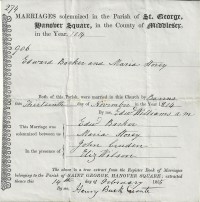 274
MARRIAGES solemnized in the Parish of St. George,
Hanover Square, in the County of Middlesex,
in the Year, 1814
906
Edward Barker and Maria Noisy
Both of this Parish, were married in this Church by Banns
this Thirteenth day of November in the Year 1814
By me, Edwd Williams
This Marriage was
solemnized between us
Edwd Barker
Maria Noisy
In the presence of
John Linden
Eliz
The above is a true extract from the Register Book of Marriages
belonging to the PARISH of SAINT GEORGE, HANOVER SQUARE; extracted
this 14th day of February
By me, Henry Buck